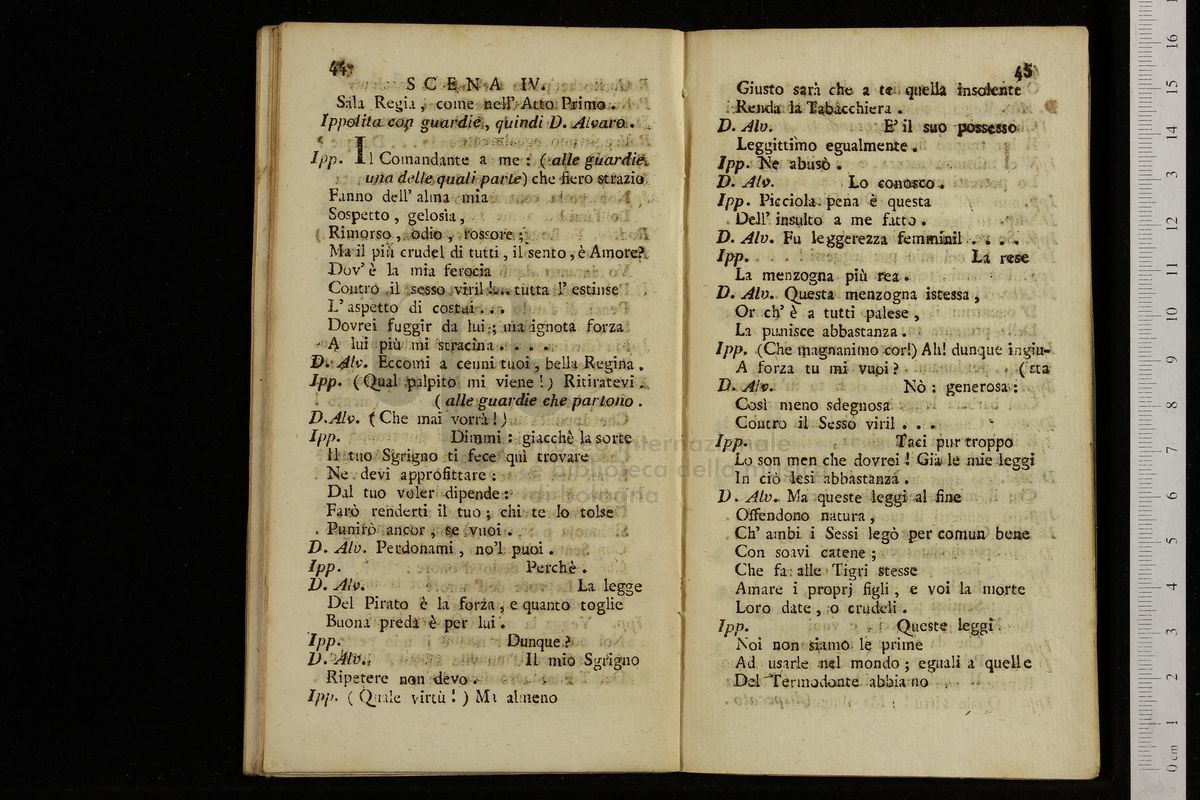 44
SCENA IV.
Sala Regia, come nell' Atto Primo.
Ippolita con guardie, quindi D. Alvaro.
Ipp. Il Comandante a me: (alle guardie,
una delle quali parte) che fiero strazio
Fanno dell' alma mia
Sospetto, gelosia,
Rimorso, odio, rossore;
Ma il più crudel di tutti, il sento, è Amore?
Dov' è la mia ferocia
Contro il sesso viril!.. tutta l' estinse
L' aspetto di costui...
Dovrei fuggir da lui; ma ignota forza
A lui più mi stracina....
D. Alv. Eccomi a cenni tuoi, bella Regina.
Ipp. (Qual palpito mi viene!) Ritiratevi.
(alle guardie che partono.
D. Alv. (Che mai vorrà!)
Ipp. Dimmi: giacchè la sorte
Il tuo Sgrigno ti fece quì trovare
Ne devi approfittare:
Dal tuo voler dipende:
Farò renderti il tuo; chi te lo tolse
Punirò ancor, se vuoi.
D. Alv. Perdonami, no'l puoi.
Ipp. Perchè.
D. Alv. La legge
Del Pirato è la forza, e quanto toglie
Buona preda è per lui.
Ipp. Dunque?
D. Alv. Il mio Sgrigno
Ripetere non devo.
Ipp. (Quale virtù!) Ma almeno
45
Giusto sarà che a te quella insolente
Renda la Tabacchiera.
D. Alv. E' il suo possesso
Leggittimo egualmente.
Ipp. Ne abusò.
D. Alv. Lo conosco.
Ipp. Picciola pena è questa
Dell' insulto a me fatto.
D. Alv. Fu leggerezza femminil....
Ipp. La rese
La menzogna più rea.
D. Alv. Questa menzogna istessa,
Or ch' è a tutti palese,
La punisce abbastanza.
Ipp. (Che magnanimo cor!) Ah! dunque ingiu-
A forza tu mi vuoi? (sta
D. Alv. Nò: generosa:
Così meno sdegnosa
Contro il Sesso viril...
Ipp. Taci pur troppo
Lo son men che dovrei! Già le mie leggi
In ciò lesi abbastanza.
D. Alv. Ma queste leggi al fine
Offendono natura,
Ch' ambi i Sessi legò per comun bene
Con soavi catene;
Che fa alle Tigri stesse
Amare i proprj figli, e voi la morte
Loro date, o crudeli.
Ipp. Queste leggi
Noi non siamo le prime
Ad usarle nel mondo; eguali a quelle
Del Termodonte abbiano
internazionale
e biblioteca della musica
di bologna